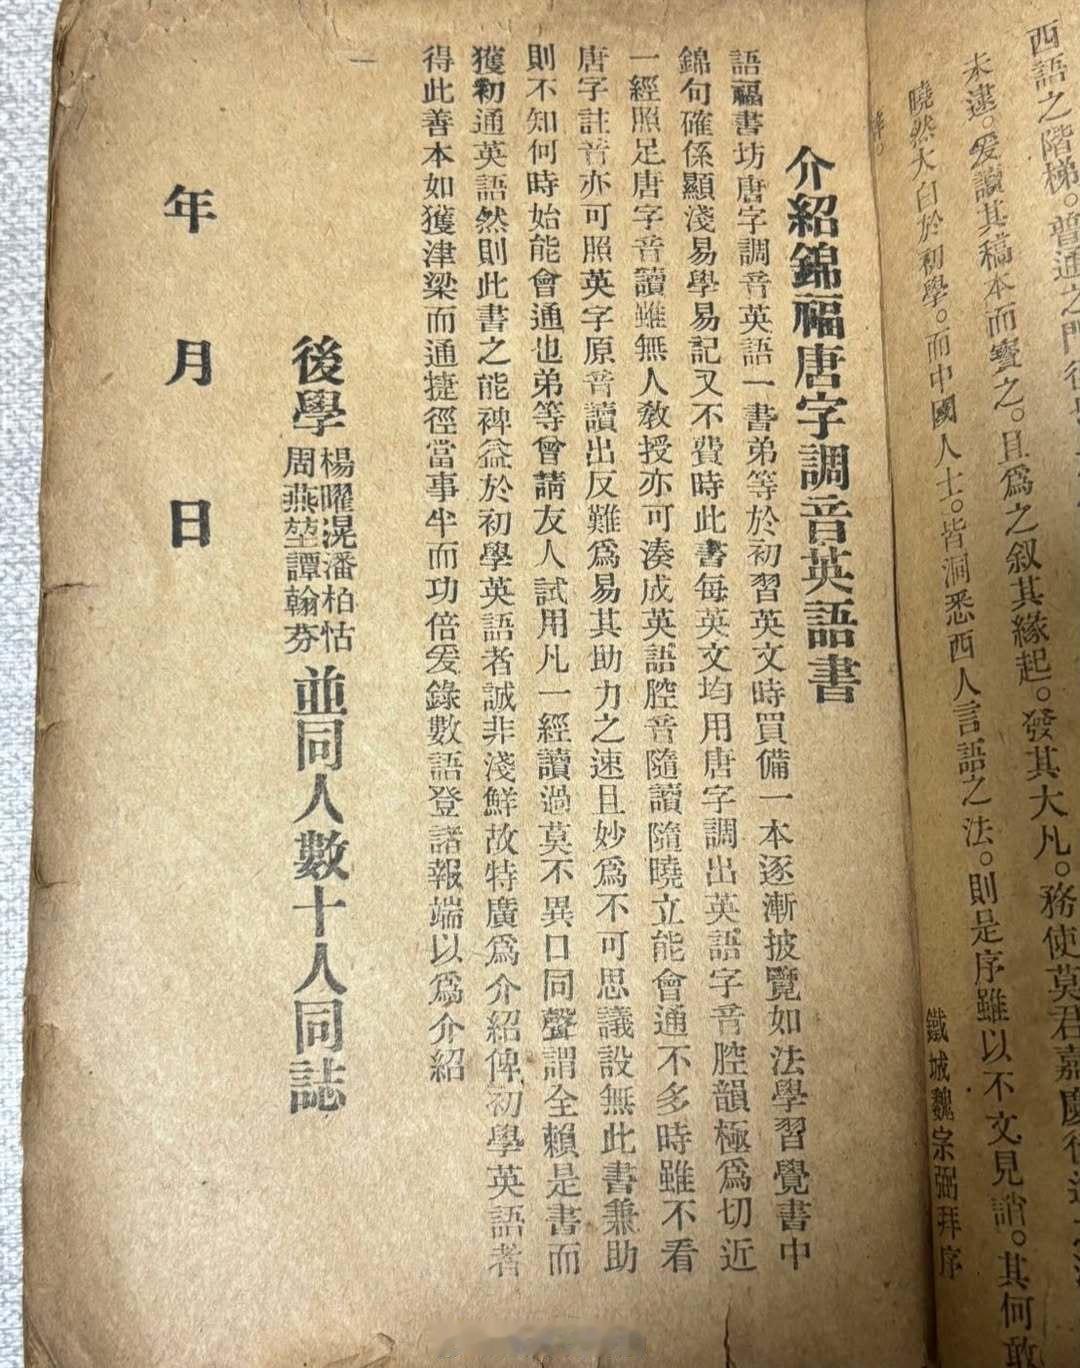 西語之階梯。普通之門徑
務使莫君嘉慶
未逮。爰讀其稿本而寶之。且爲之叙其緣起。發其大凡。
曉然大白於初學。而中國人士。皆洞悉西人言語之法。則是序雖以不文見誚。其何敢
辭。
鐵城魏宗弼拜序
介紹錦福唐字調音英語書
語福書坊唐字調音英語一書弟等於初習英文時買備一本逐漸披覽如法學習覺書中
錦句確係顯淺易學易記又不費時此書每英文均用唐字調出英語字音腔韻極爲切近
一經照足唐字音讀雖無人教授亦可湊成英語腔音隨讀隨曉立能會通不多時雖不看
唐字註音亦可照英字原音讀出反難爲易其助力之速且妙爲不可思議設無此書兼助
則不知何時始能會通也弟等曾請友人試用凡一經讀過莫不異口同聲謂全賴是書而
獲初通英語然則此書之能裨益於初學英語者誠非淺鮮故特廣爲介紹俾初學英語者
得此善本如獲津梁而通捷徑當事半而功倍爰錄數語登諸報端以爲介紹
一
後學
楊曜滉潘柏怙
周燕堃譚翰芬
並同人數十人同誌
年月日